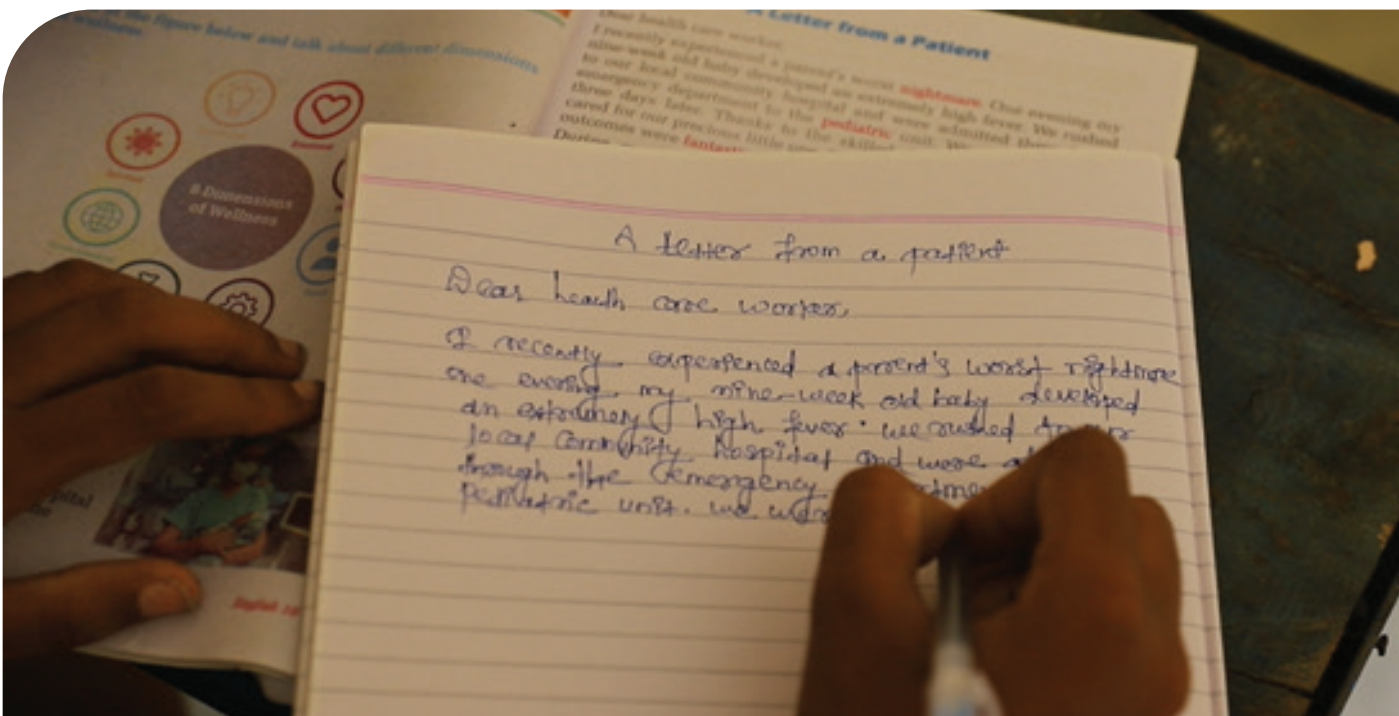 the figure below and talk about different dimensions
wellness.
8 Dimensions
of Wellness
English 10
A Letter from a Patient
health care worker,
I recently experienced a parent's worst nightmare. One evening my
nine-week old baby developed an extremely high fever. We rushed
to our local community hospital and were admitted
emergency department to the pediatric unit. We
three days later. Thanks to the skilled
cared for our precious little
outcomes were
During
A letter from a patient
Dear health care worker,
I recently experienced a parent's worst nightmare
one evening my nine-week old baby developed
an extremely high fever. we rushed
local community hospital and were
through the emergency
pediatric unit. we